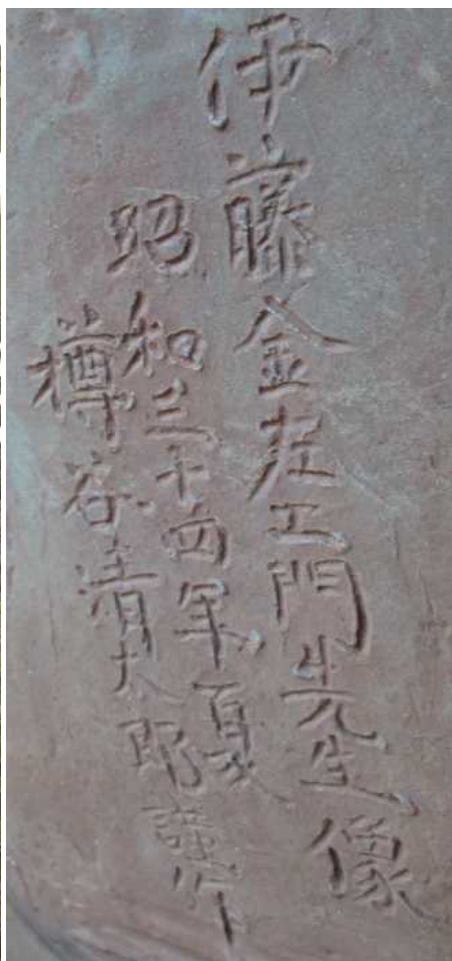 伊藤金左エ門先生像
昭和三十四年夏
樽谷清太郎謹作